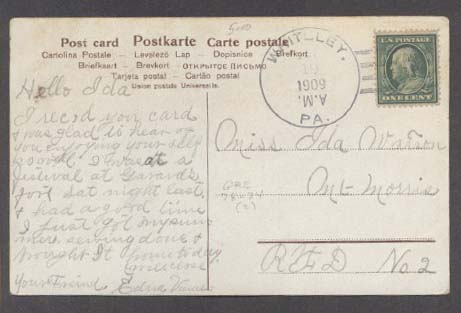 5000
Post card Postkarte Carte postale
Cartolina Postale – Levelező Lap – Dopisnice – Brefkort.
Briefkaart – Brevkort – ОТКРЫТОЕ ПИСЬМО
Tarjeta postal – Cartão postal
Union postale Universelle.
WHITELEY.
A.M.
1909
PA.
U.S. POSTAGE
ONE CENT
Hello Ida
I recd you card
& was glad to hear of
you enjoying your self
so well. I was at a
festival at Garards
fort Sat night last.
& had a good time
I just got my
sewing done &
brought it home today
Your Friend Edna
Miss Ida Watson
Mt. Morris
R.F.D No. 2